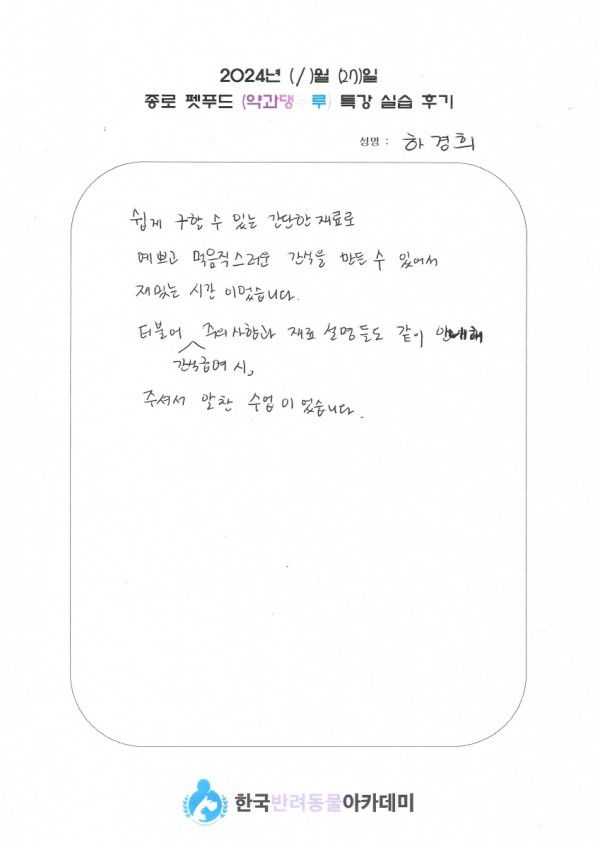 2024년 (1)월 (27)일
종로 펫푸드 (약과댕 루) 특강 실습 후기
성명 : 하경희
쉽게 구할 수 있는 간단한 재료로
예쁘고 먹음직스러운 간식을 만든 수 있어서
재밌는 시간 이었습니다.
더불어 주의사항과 재료 설명들도 같이 안내해
간식급여 시,
주셔서 알찬 수업이었습니다.
한국반려동물아카데미